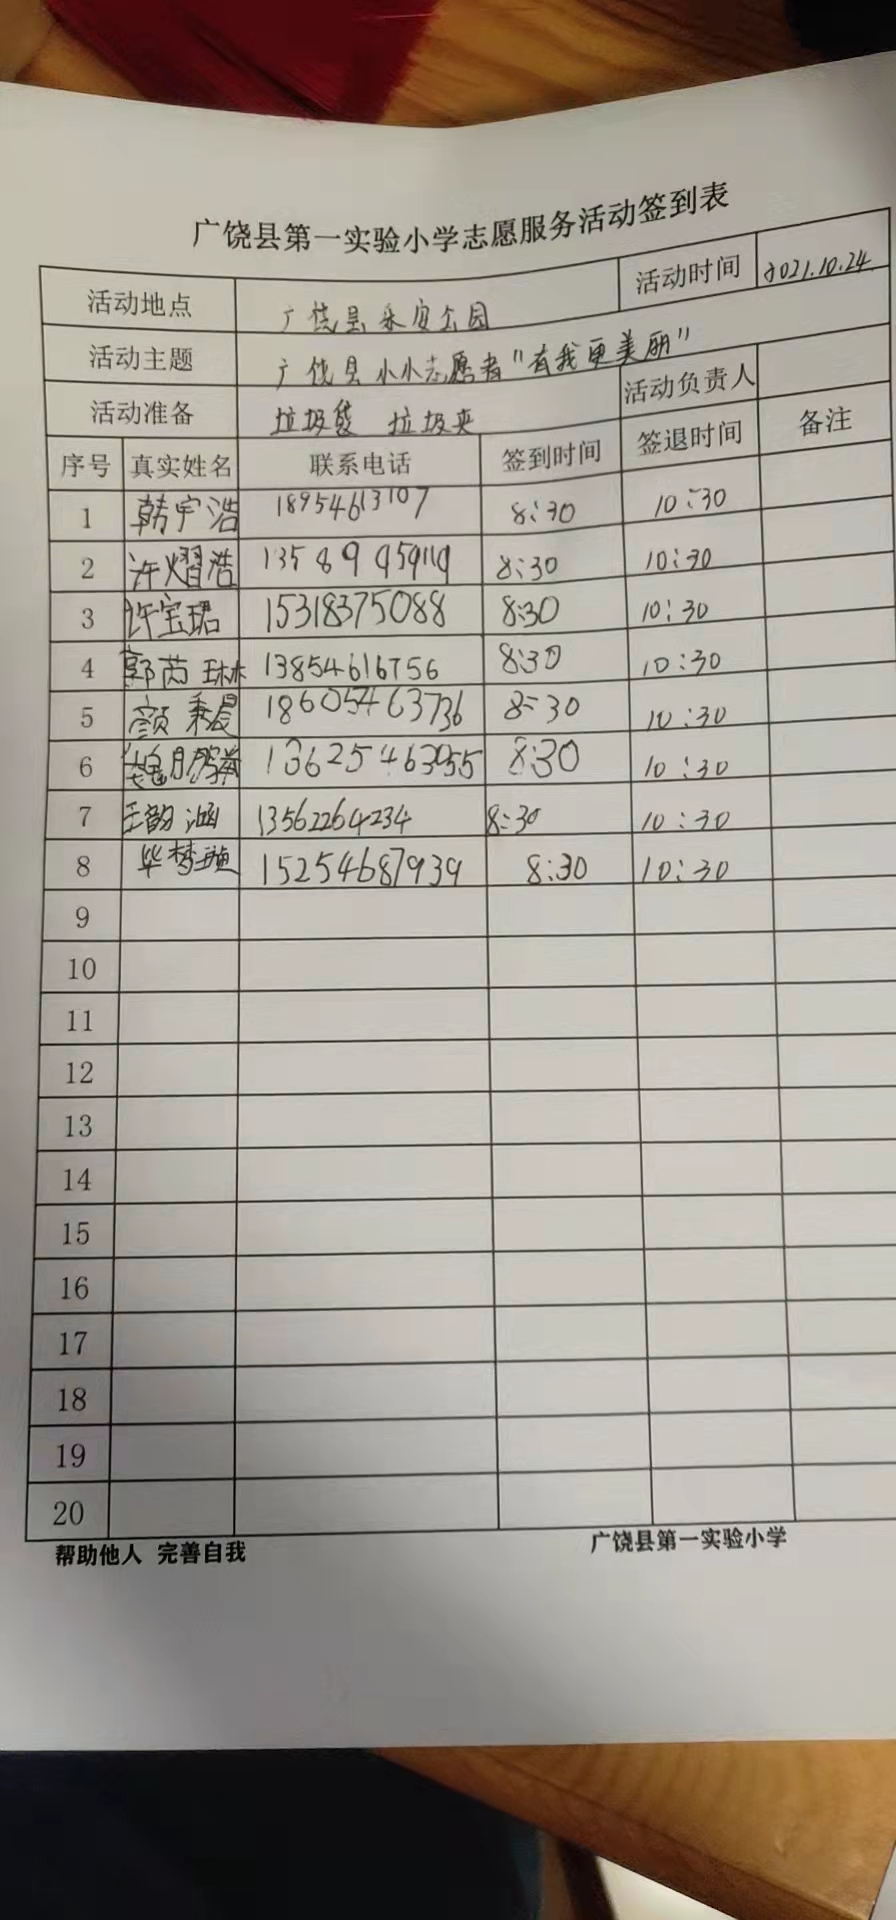 广饶县第一实验小学志愿服务活动签到表
活动地点 广饶县乐安公园 活动时间 2021.10.24
活动主题 广饶县小小志愿者"有我更美丽"
活动准备 垃圾袋 垃圾夹 活动负责人
序号 真实姓名 联系电话 签到时间 签退时间 备注
1 韩宇浩 18954613107 8:30 10:30
2 许熠浩 8:30 10:30
3 许宝珺 15318375088 8:30 10:30
4 郭芮琳 13854616756 8:30 10:30
5 颜秉晨 18605463736 8:30 10:30
6 魏 8:30 10:30
7 王韵涵 13562264234 8:30 10:30
8 毕梦璇 15254687939 8:30 10:30
9
10
11
12
13
14
15
16
17
18
19
20
帮助他人 完善自我 广饶县第一实验小学